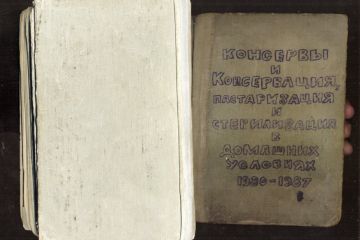 КОНСЕРВЫ
И
КОНСЕРВАЦИЯ,
ПАСТАРИЗАЦИЯ
И
СТЕРИЛИЗАЦИЯ
В
ДОМАШНИХ
УСЛОВИЯХ
1980-1987